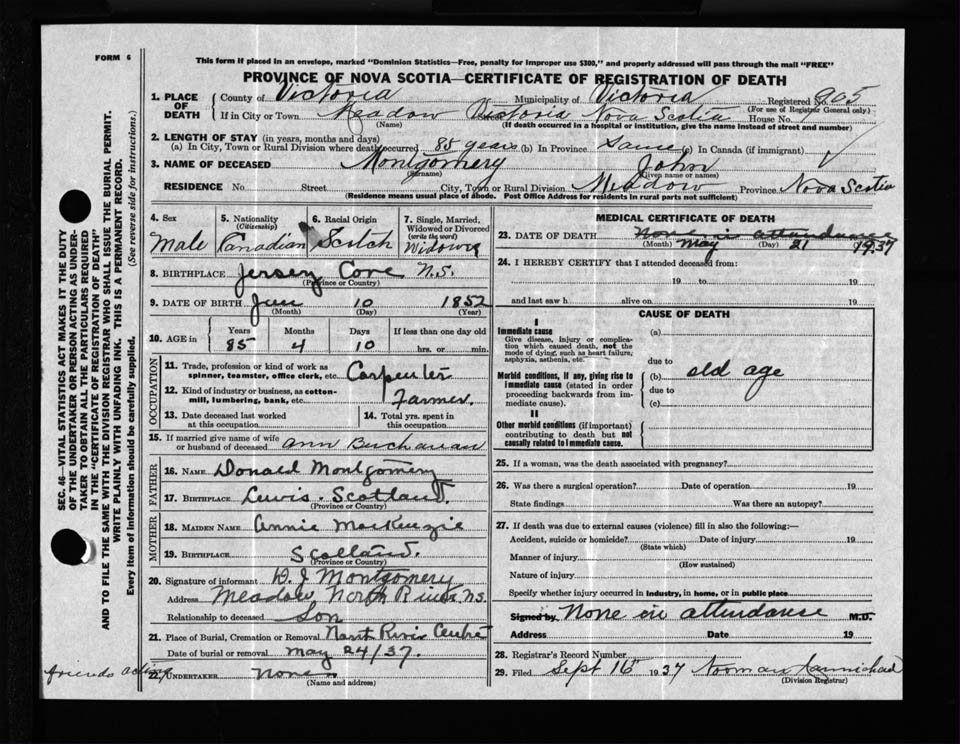 FORM 6
This form if placed in an envelope, marked "Dominion Statistics—Free, penalty for improper use $300," and properly addressed will pass through the mail "FREE"
PROVINCE OF NOVA SCOTIA—CERTIFICATE OF REGISTRATION OF DEATH
1. PLACE OF DEATH County of Victoria Municipality of Victoria Registered No. 905
(For use of Registrar General only.)
If in City or Town Meadow Victoria Nova Scotia House No.
(Name) (If death occurred in a hospital or institution, give the name instead of street and number)
2. LENGTH OF STAY (in years, months and days)
(a) In City, Town or Rural Division where death occurred 85 years (b) In Province Same (c) In Canada (if immigrant) ✓
3. NAME OF DECEASED Montgomery John
(Surname) (Given name or names)
RESIDENCE No Street City, Town or Rural Division Meadow Province Nova Scotia
(Residence means usual place of abode. Post Office Address for residents in rural parts not sufficient)
4. Sex Male
5. Nationality (Citizenship) Canadian
6. Racial Origin Scotch
7. Single, Married, Widowed or Divorced (write the word) Widower
8. BIRTHPLACE Jersey Cove N.S.
(Province or Country)
9. DATE OF BIRTH 10 1852
(Month) (Day) (Year)
10. AGE in Years Months Days If less than one day old
85 4 10 hrs. or min.
OCCUPATION
11. Trade, profession or kind of work as spinner, teamster, office clerk, etc. Carpenter
12. Kind of industry or business, as cotton-mill, lumbering, bank, etc. Farmer.
13. Date deceased last worked at this occupation
14. Total yrs. spent in this occupation
15. If married give name of wife or husband of deceased Ann Buchanan
FATHER
16. NAME Donald Montgomery
17. BIRTHPLACE Lewis. Scotland.
(Province or Country)
MOTHER
18. MAIDEN NAME Annie MacKenzie
19. BIRTHPLACE Scotland.
(Province or Country)
20. Signature of informant D. J Montgomery
Address Meadow, North River, N.S.
Relationship to deceased Son
21. Place of Burial, Cremation or Removal North River Centre
Date of burial or removal May 24/37.
friends acting
22. UNDERTAKER None.
(Name and address)
MEDICAL CERTIFICATE OF DEATH
None in attendance
23. DATE OF DEATH May 21 1937
(Month) (Day)
24. I HEREBY CERTIFY that I attended deceased from:
19 to 19
and last saw h alive on 19
CAUSE OF DEATH
I
Immediate cause (a)
Give disease, injury or complication which caused death, not the mode of dying, such as heart failure, asphyxia, asthenia, etc.
due to
Morbid conditions, if any, giving rise to immediate cause (stated in order proceeding backwards from immediate cause).
(b) old age
due to
(c)
II
Other morbid conditions (if important) contributing to death but not causally related to immediate cause.
25. If a woman, was the death associated with pregnancy?
26. Was there a surgical operation? Date of operation 19
State findings Was there an autopsy?
27. If death was due to external causes (violence) fill in also the following:—
Accident, suicide or homicide? Date of injury 19
(State which)
Manner of injury
(How sustained)
Nature of injury
Specify whether injury occurred in industry, in home, or in public place
Signed by None in attendance M.D.
Address Date 19
28. Registrar's Record Number
29. Filed Sept 16 1937 Norman Carmichael
(Division Registrar)
SEC. 46—VITAL STATISTICS ACT MAKES IT THE DUTY
OF THE UNDERTAKER OR PERSON ACTING AS UNDERTAKER TO OBTAIN ALL THE PARTICULARS REQUIRED
IN THE "CERTIFICATE OF REGISTRATION OF DEATH"
AND TO FILE THE SAME WITH THE DIVISION REGISTRAR WHO SHALL ISSUE THE BURIAL PERMIT.
WRITE PLAINLY WITH UNFADING INK. THIS IS A PERMANENT RECORD.
Every item of information should be carefully supplied. (See reverse side for instructions.)